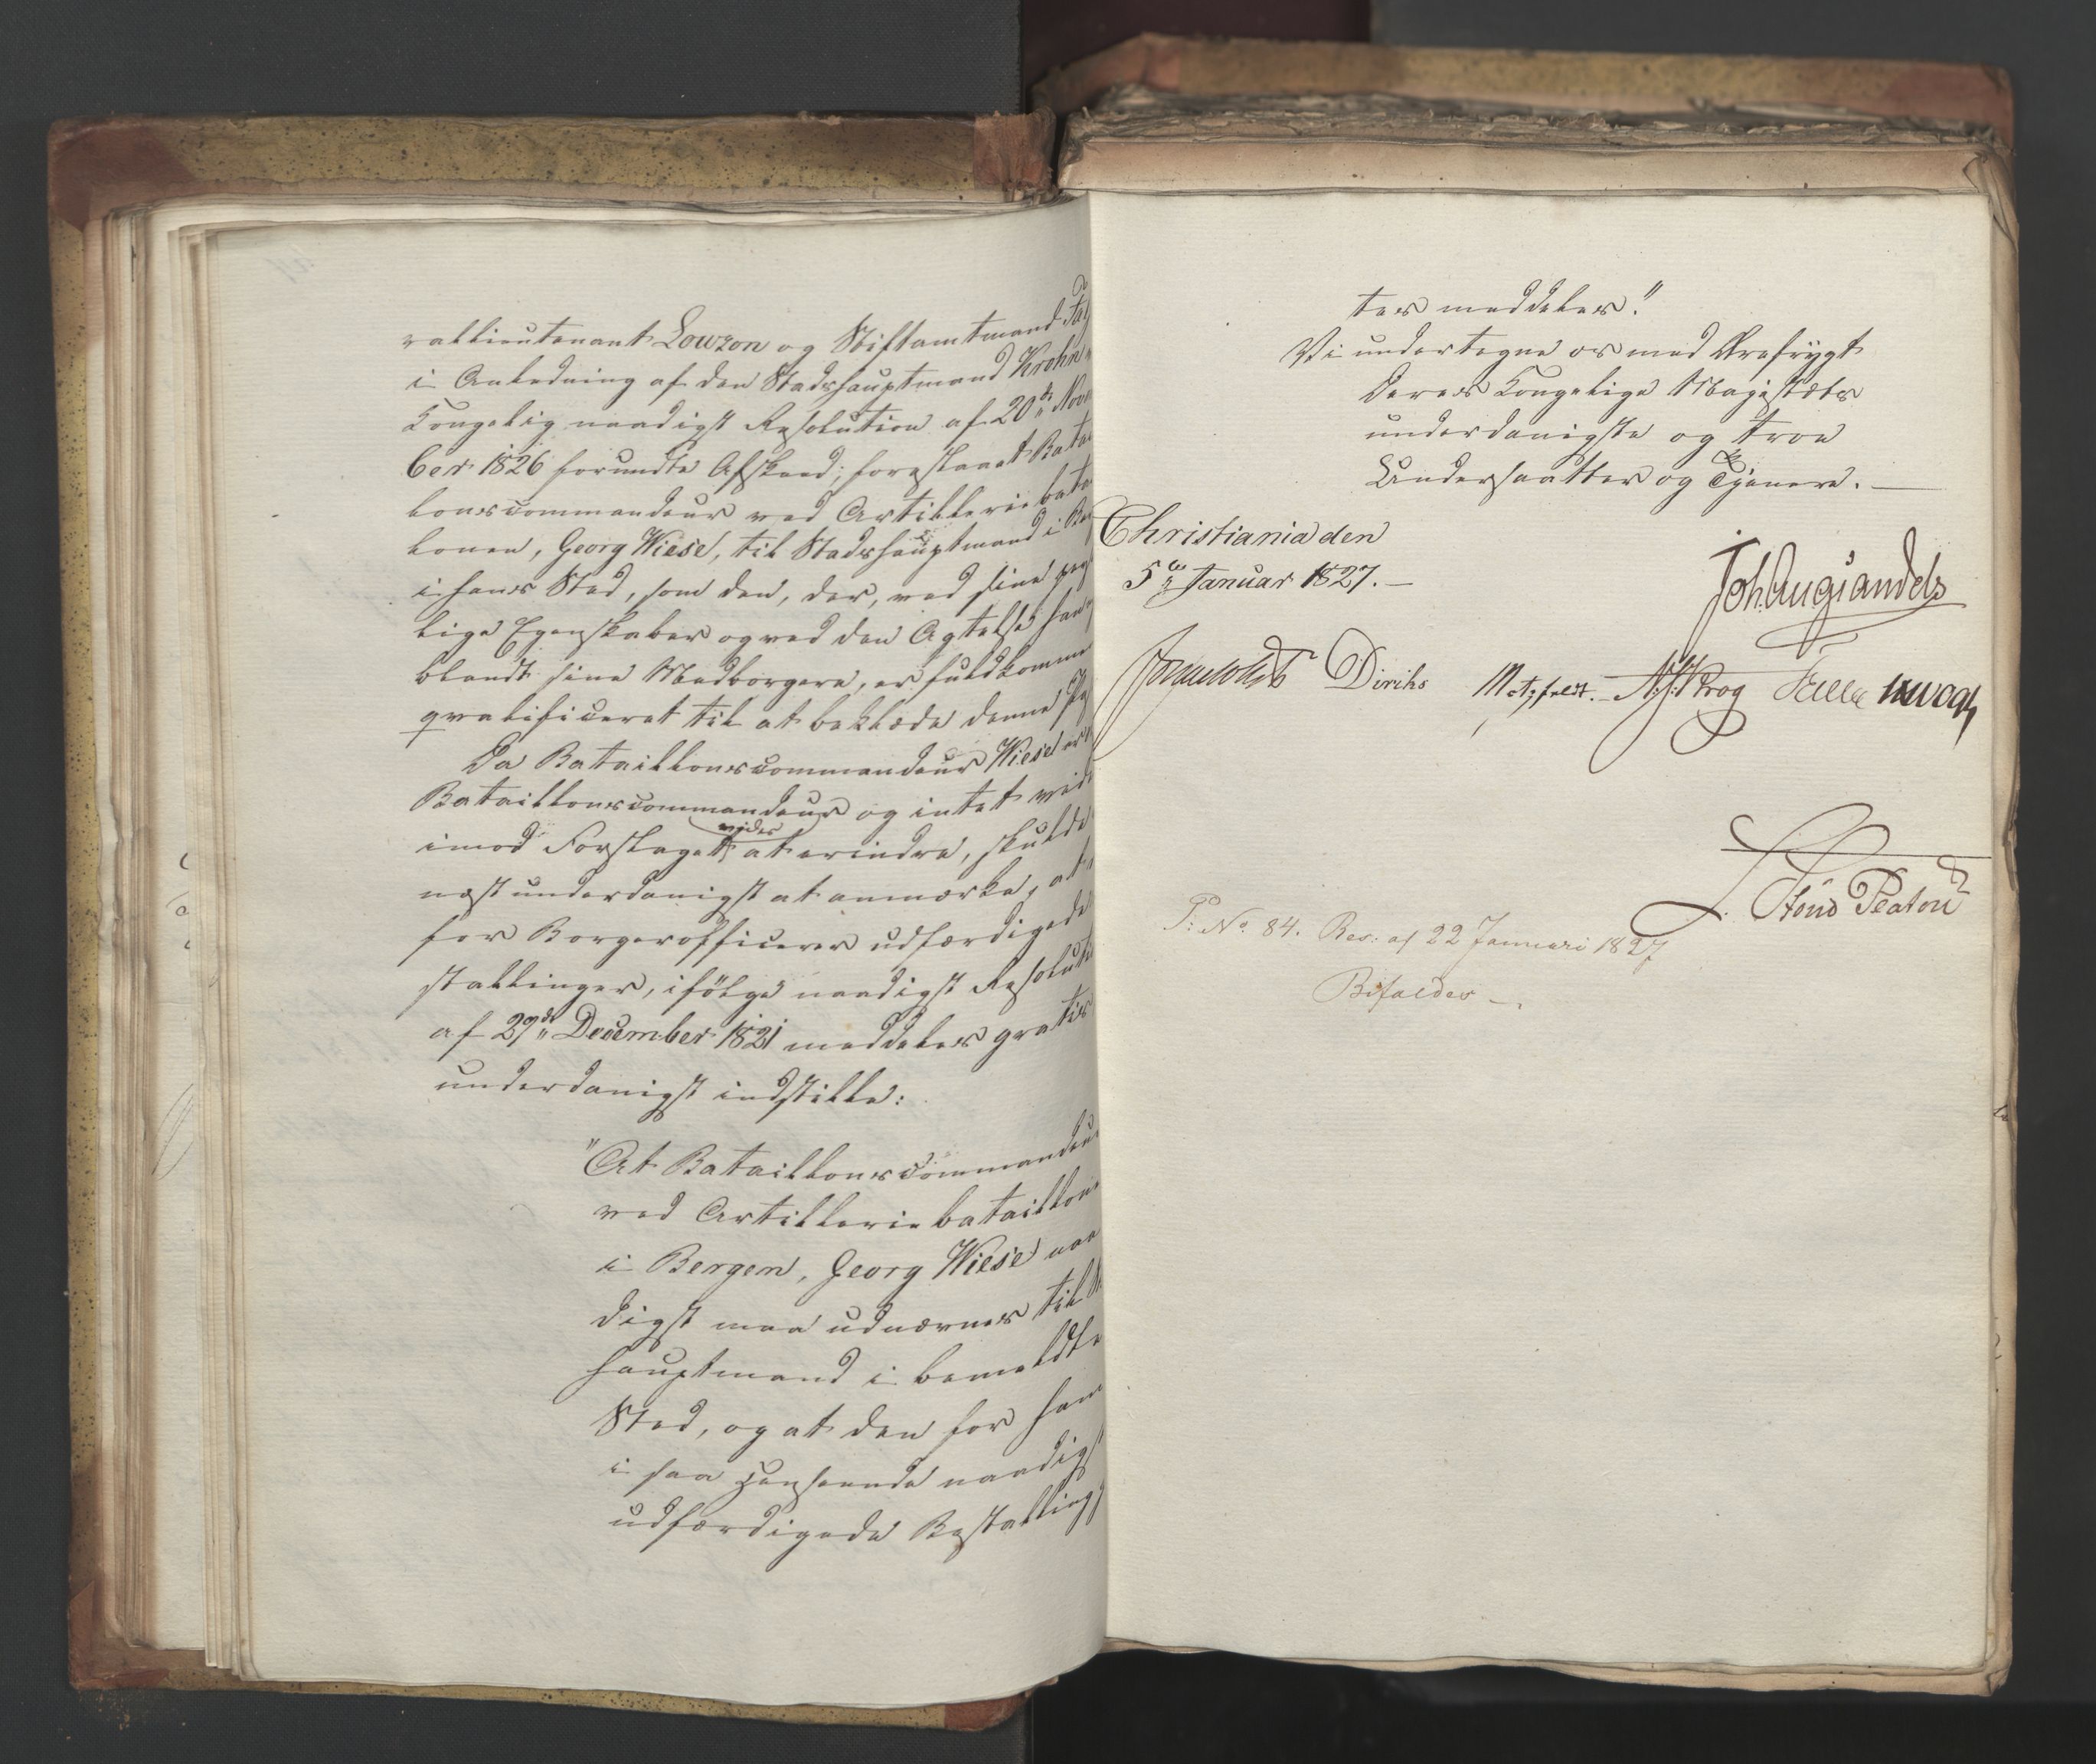 rallieutenant Lowzon og Stiftamtmand
i Anledning af den Stadshauptmand Krohn
Kongelig naadigst Resolution af 20de Novem
ber 1826 forundte Afskeed, foreslaaet Batai
lonscommandeur ved Artilleriebatai
lonen, Georg Wiese, til Stadshauptmand i Ber
i hans Sted, som den, der, ved sine per
lige Egenskaber og ved den Agtelse han
blandt sine Medborgere, er fuldkommen
qvalificeret til at beklæde denne
Da Bataillonscommandeur Wiese er
Bataillonscommandeur og intet vides
imod Forslaget vides at erindre, skulde
næst underdanigst at anmærke, at
for Borgerofficerer udfærdigede
stallinger, ifølge naadigst Resolutio
af 27de December 1821 meddeles gratis
underdanigst indstille:
"At Bataillonscommandeur
ved Artilleriebataillone
i Bergen, Georg Wiese naa
digst maa udnævnes til St
hauptmand i bemeldte
Sted, og at den for ham
i saa Henseende naadigst
udfærdigede Bestalling
tes meddeles."
Vi undertegne os med Ærefrygt
Deres Kongelige Majestæts
underdanigste og troe
Undersaatter og Tjenere. —
Christiania den
5te Januar 1827. —
Joh. Aug. Sandels
Diriks Motzfeldt. Krog
P: No. 84. Res: af 22 Januari 1827
Bifaldes —